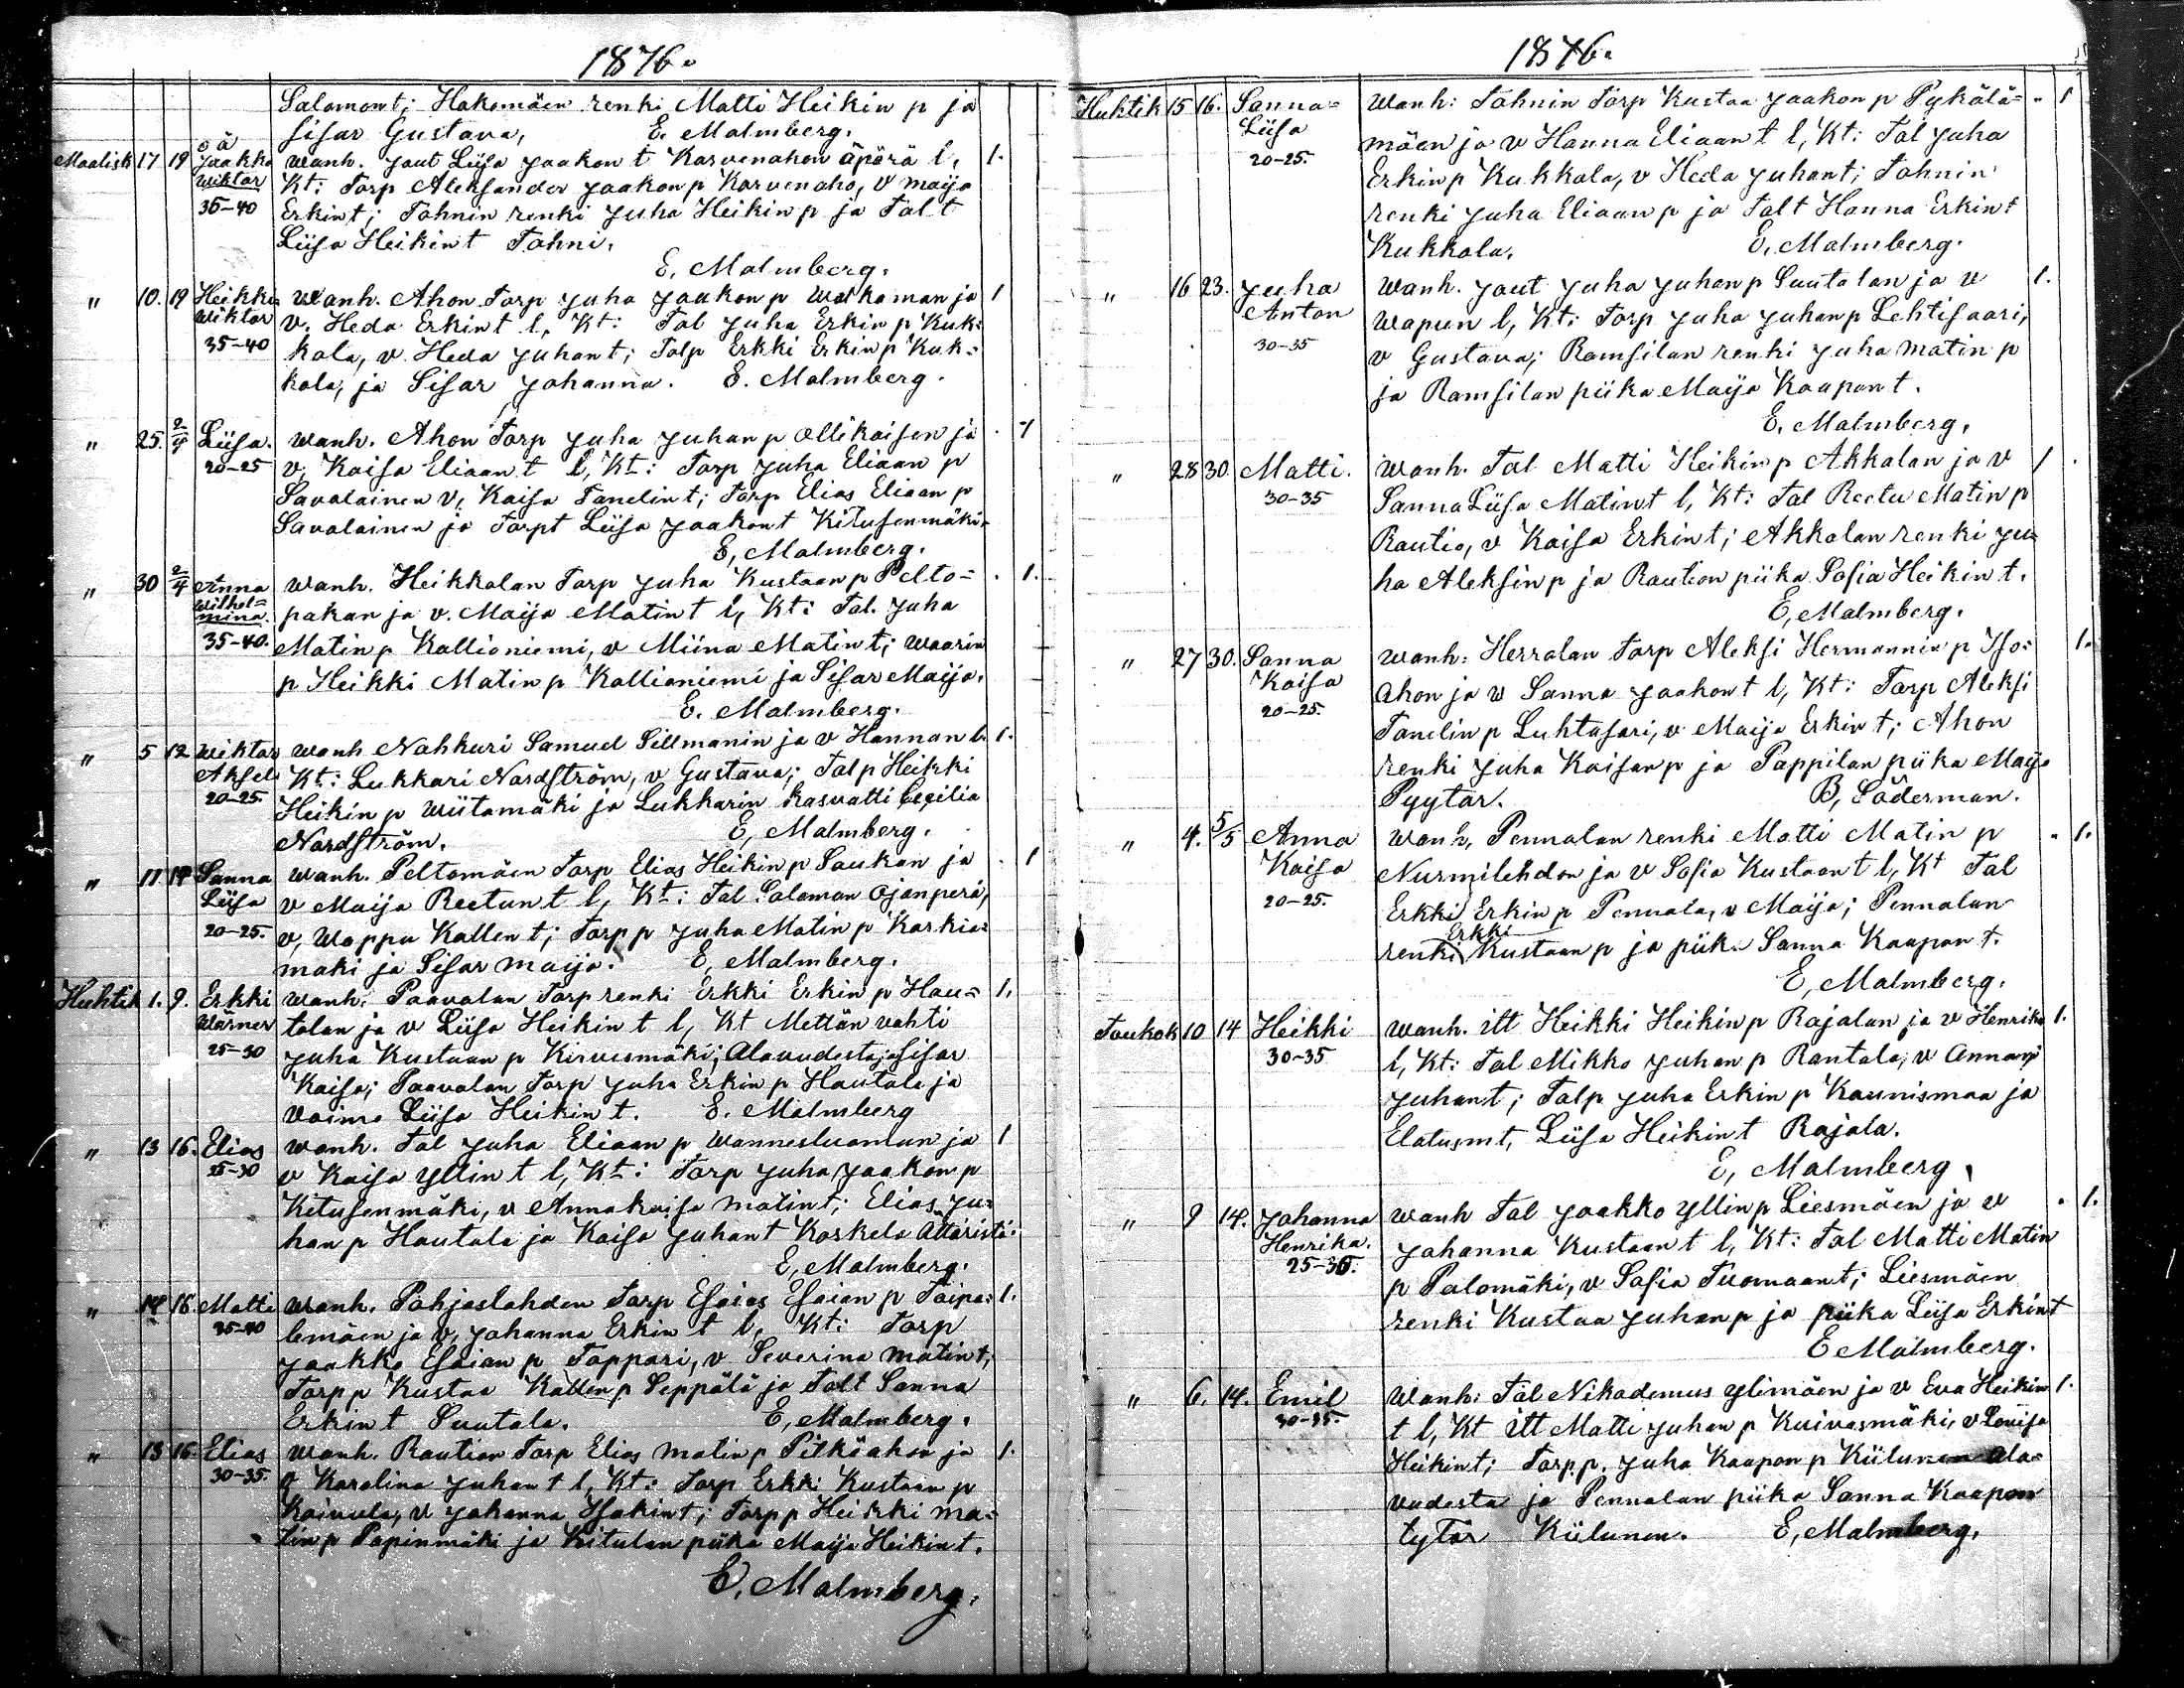 1876.
Salomont; Hakomäen renki Matti Heikin p ja
sisar Gustava, E. Malmberg.
Maalisk 17 19 oä Jaakko Wiktor 35-40 Wanh. Jaut Liisa Jaakon t Karvenahon äpärä l, 1.
Kt: Torp Aleksander Jaakon p Karvenaho, v Maija
Erkint; Tohnin renki Juha Heikin p ja Tal t
Liisa Heikin t Tohni.
E. Malmberg.
" 10. 19 Heikki Wiktor 35-40 Wanh. Ahon Torp Juha Jaakon p Walkaman ja 1
v. Heda Erkin t l, Kt: Tal Juha Erkin p Kuk-
kola, v. Heda Juhant; Talp Erkki Erkin p Kuk-
kola, ja Sisar Johanna. E. Malmberg.
" 25. 2/4 Liisa. 20-25 Wanh. Ahon Torp Juha Juhan p Ollikaisen ja . 1
v, Kaisa Eliaan t l, Kt: Torp Juha Eliaan p
Savalainen v, Kaisa Tanelint; Torp Elias Eliaan p
Savalainen ja Torpt Liisa Jaakont Kitusenmäki-
E, Malmberg.
" 30 2/4 Anna Wilhel=mina. 35-40. Wanh. Heikkalan Torp Juha Kustaan p Pelto= . 1.
pakan ja v. Maija Matin t l, Kt: Tal. Juha
Matin p Kallioniemi, v Miina Matint; Waarin
p Heikki Matin p Kallioniemi ja Sisar Maija.
E. Malmberg.
" 5 12 Wiktor Aksel 20-25. Wanh Nahkuri Samuel Sillmanin ja v Hannan l. 1.
Kt: Lukkari Nordström, v Gustava; Talp Heikki
Heikin p Wiitamäki ja Lukkarin kasvatti Cecilia
Nordström. E, Malmberg.
" 11 14 Sanna Liisa 20-25. Wanh. Peltomäen Torp Elias Heikin p Saukon ja . 1
v Maija Reetun t l, Kt: Tal Salomon Ojanperä,
v, Wappu Kallen t; Torp p Juha Matin p Karkia=
maki ja Sisar Maija. E, Malmberg.
Huhtik 1. 9. Erkki Wärner 25-30 Wanh. Paavolan Torp renki Erkki Erkin p Hau= 1.
talan ja v Liisa Heikin t l, Kt Mettän vahti
Juha Kustaan p Kirvesmäki; Alavudesta ja Sisar
Kaisa; Paavolan Torp Juha Erkin p Hautala ja
Vaimo Liisa Heikin t. E. Malmberg
" 13 16. Elias 25-30 Wanh. Tal Juha Eliaan p Wannesluoman ja 1
v Kaisa Yllin t l, Kt: Torp Juha Jaakon p
Kitusenmäki, v Annakaisa Matint; Elias Ju=
han p Hautala ja Kaisa Juhant Koskela Ätäristä.
E, Malmberg.
" 14 16. Matti 35-40 Wanh. Pohjaslahden Torp Esaias Esaian p Taipa= 1.
lemäen ja v, Johanna Erkin t l, Kt: Torp
Jaakko Esaian p Tappari, v Severina Matint,
Torp p Kustaa Kallen p Seppälä ja Talt Sanna
Erkin t Suutala. E, Malmberg.
" 13 16 Elias 30-35. Wanh. Raution Torp Elias Matin p Pitkäahon ja 1.
v Karolina Juhan t l, Kt: Torp Erkki Kustaan p
Koivula, v Johanna Isakint; Torp p Heikki Ma=
tin p Papinmäki ja Kitulan piika Maija Heikint.
E. Malmberg.
1876.
Huhtik 15 16. Sanna= Liisa 20-25. Wanh: Tohnin Torp Kustaa Jaakon p Pykälä= . 1
mäen ja v Hanna Eliaan t l, Kt: Tal Juha
Erkin p Kukkola, v Heda Juhant; Tohnin
renki Juha Eliaan p ja Talt Hanna Erkint
Kukkola. E. Malmberg.
" 16 23. Juha Anton 30-35 Wanh. Jaut Juha Juhan p Suutalan ja v 1.
Wapun l, Kt: Torp Juha Juhan p Lehtisaari,
v Gustava; Ramsilan renki Juha Matin p
ja Ramsilan piika Maija Kaapon t.
E. Malmberg.
" 28 30. Matti. 30-35 Wanh. Tal Matti Heikin p Akkalan ja v 1
Sanna Liisa Matint l, Kt: Tal Reetu Matin p
Rautio, v Kaisa Erkint; Akkalan renki Ju=
ha Aleksin p ja Raution piika Sofia Heikin t.
E, Malmberg.
" 27 30. Sanna Kaisa 20-25. Wanh: Herralan Torp Aleksi Hermannin p Iso= 1.
Ahon ja v Sanna Jaakon t l, Kt: Torp Aleksi
Tanelin p Luhtasari, v Maija Erkin t; Ahon
renki Juha Kaisan p ja Pappilan piika Maija
Pyytar. B, Söderman.
" 4. 5/5 Anna Kaisa 20-25. Wanh, Pennalan renki Matti Matin p . 1.
Nurmilehdon ja v Sofia Kustaan t l, Kt Tal
Erkki Erkin p Pennala, v Maija; Pennalan
renki Erkki Kustaan p ja piika Sanna Kaapon t.
E, Malmberg.
Toukok 10 14 Heikki 30-35 Wanh. itt Heikki Heikin p Rajalan ja v Henrika 1.
l, Kt: Tal Mikko Juhan p Rantala, v Annan
Juhant; Talp Juha Erkin p Kaunismaa ja
Elatusmt, Liisa Heikint Rajala.
E, Malmberg
" 9 14. Johanna Henrika. 25-30. Wanh Tal Jaakko Yllin p Liesmäen ja v . 1.
Johanna Kustaan t l, Kt: Tal Matti Matin
p Palomäki, v Sofia Tuomaant; Liesmäen
renki Kustaa Juhan p ja piika Liisa Erkint
E Malmberg.
" 6. 14. Emil 30-35. Wanh: Tal Nikodemus Ylimäen ja v Eva Heikin 1.
t l, Kt itt Matti Juhan p Kuivasmäki, v Lovisa
Heikint; Torp p. Juha Kaapon p Kiilunen Ala=
vudesta ja Pennalan piika Sanna Kaapon
tytär Kiilunen. E, Malmberg.